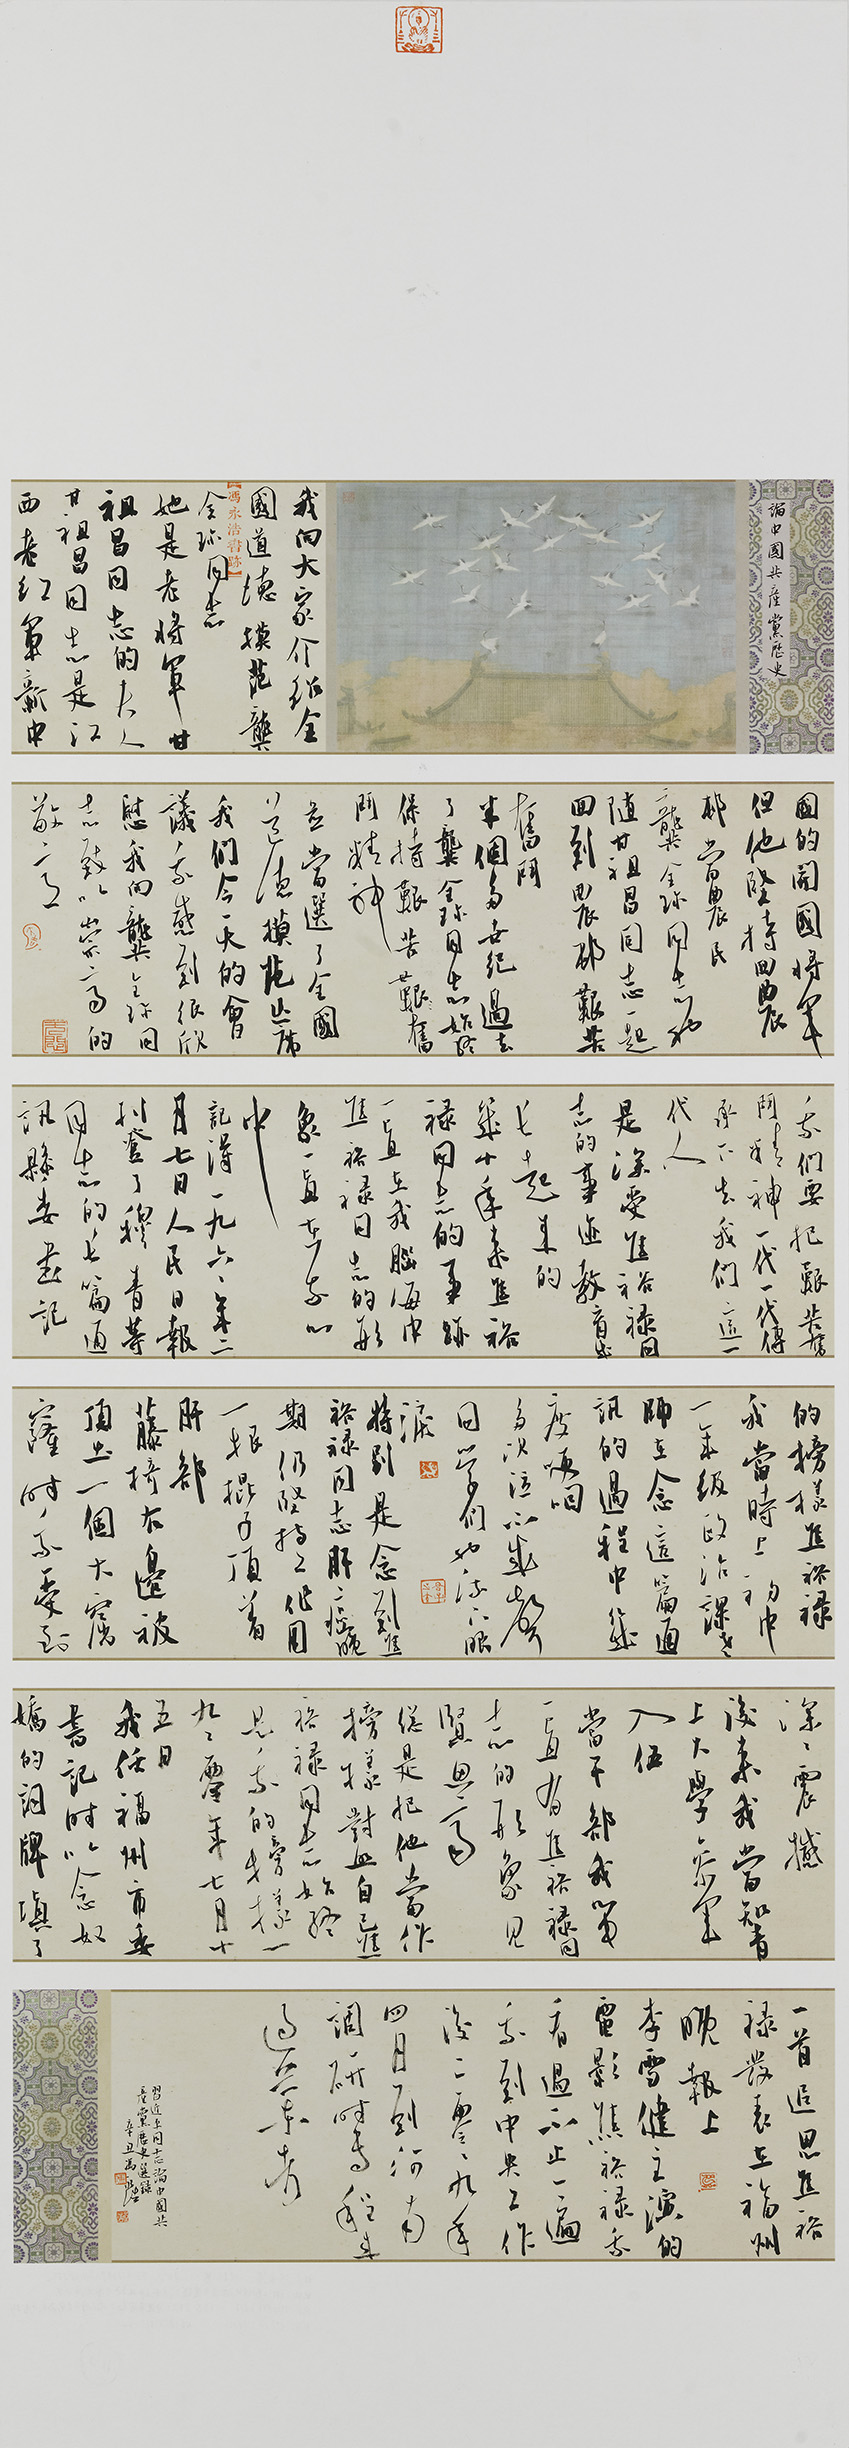 論中國共産黨歷史
我向大家介紹全
國道德模范龔
全珍同志
【馮永浩書跡】
她是老將軍甘
祖昌同志的夫人
甘祖昌同志是江
西老紅軍新中
國的開國將軍
但他堅持回農
邨當農民
龔全珍同志也
隨甘祖昌同志一起
回到農邨艱苦
奮鬥
半個多世紀過去
了龔全珍同志始終
保持艱苦艱奮
鬥精神
並當選了全國
道德模范出席
我們今天的會
議我感到很欣
慰我向龔全珍同
志致以崇高的
敬意
我們要把艱苦奮
鬥精神一代一代傳
承下去我們這一
代人
是深受焦裕祿同
志的事迹教育成
長起來的
幾十年來焦裕
祿同志的事跡
一直在我腦海中
焦裕祿同志的形
象一直在我心
中
記得一九六六年二
月七日人民日報
刊登了穆青等
同志的長篇通
訊縣委書記
的榜樣焦裕祿
我當時上初中
一年級政治課老
師在念這篇通
訊的過程中幾
度哽咽
多次泣不成聲
同學們也流下眼
淚
特別是念到焦
裕祿同志肝癌晚
期仍堅持工作用
一根棍子頂著
肝部
藤椅右邊被
頂出一個大窟
窿時我受到
深深震撼
後來我當知青
上大學參軍
入伍
當干部我心中
一直有焦裕祿同
志的形象見
賢思齊
總是把他當作
榜樣對照自己焦
裕祿同志始終
是我的榜樣一
九九零年七月十
五日
我任福州市委
書記時以念奴
嬌的詞牌填了
一首追思焦裕
祿發表在福州
晚報上
李雪健主演的
電影焦裕祿我
看過不止一遍
我到中央工作
後二零零九年
四月到河南
調研時專程去
過蘭考
習近平同志論中國共
産黨歷史選錄
辛丑馮永浩